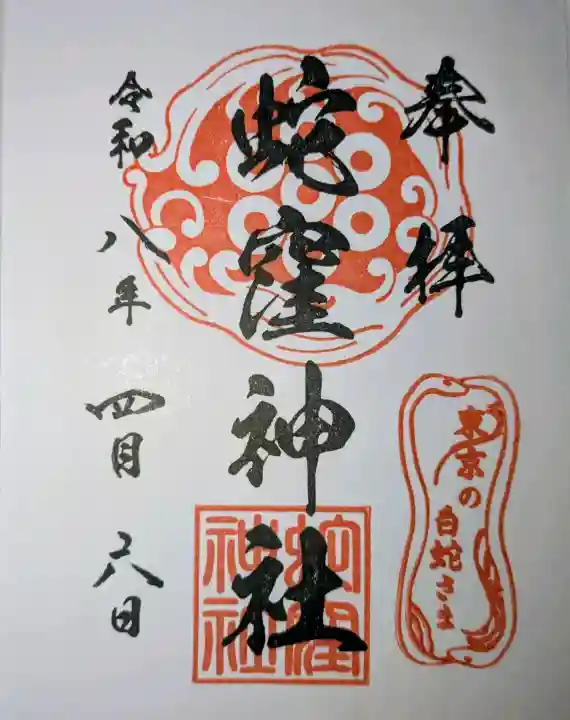 奉拝
東京の白蛇さま
蛇窪神社
蛇窪神社
令和八年四月六日